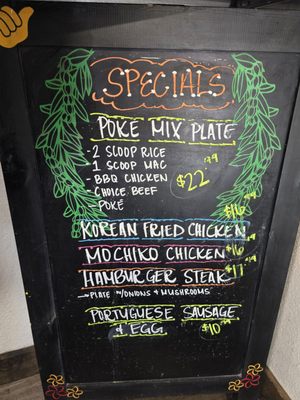 SPECIALS
POKÉ MIX PLATE
- 2 SCOOP RICE
1 SCOOP MAC
- BBQ CHICKEN
- CHOICE BEEF
- POKÉ
$22.99
KOREAN FRIED CHICKEN $16.99
MOCHIKO CHICKEN $16.99
HAMBURGER STEAK
→ PLATE W/ONIONS & MUSHROOMS
PORTUGUESE SAUSAGE
& EGG $10.99